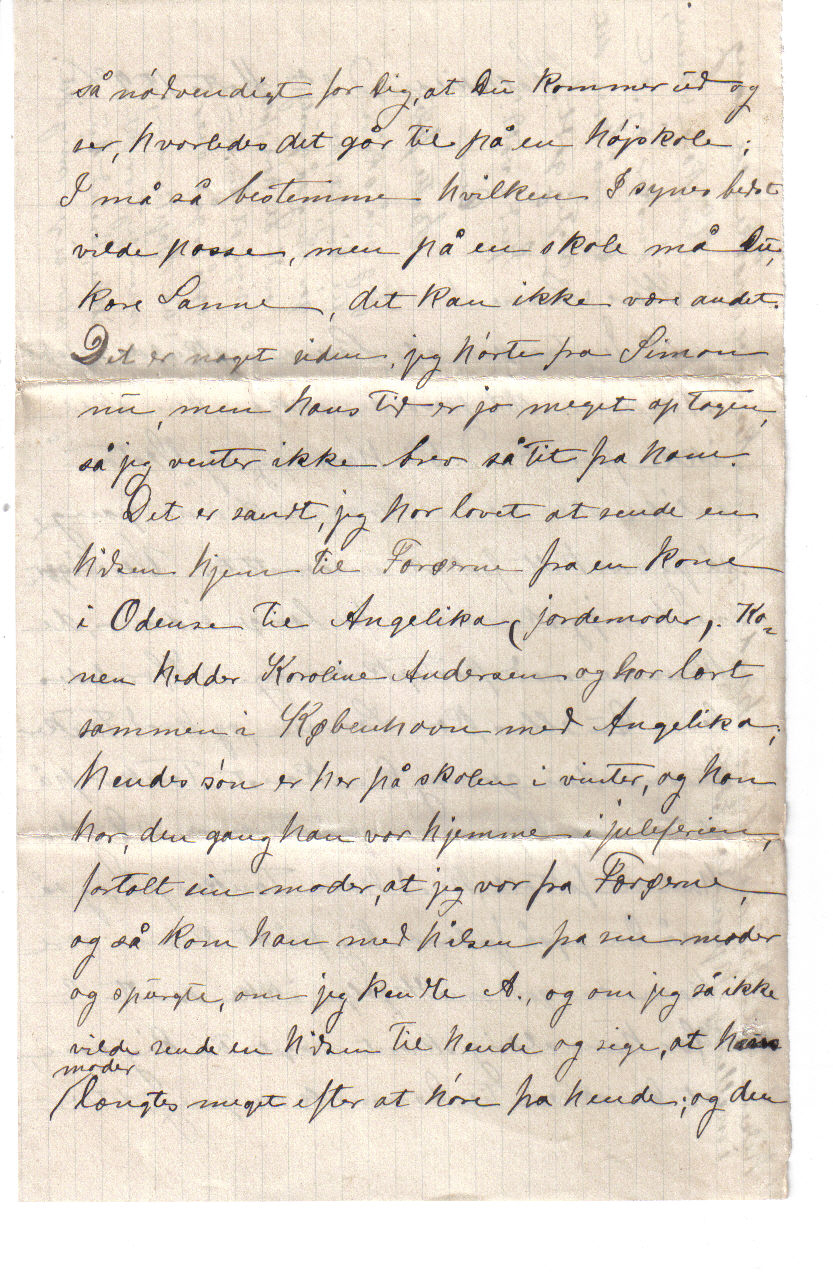 så nódvendigt for Dig, at Du kommer ud og
ser, hvorledes det går til på en højskole;
I må så bestemme hvilken I synes bedst
vilde passe, men på en skole må Du,
kære Sanne, det kan ikke være andet.
Det er noget siden, jeg hórte fra Simon
nu, men hans tid er jo meget optagen,
så jeg venter ikke brev så tit fra ham.
Det er sandt, jeg har lovet at sende en
hilsen hjem til Færøerne fra en kone
i Odense til Angelika (jordemoder). Ko=
nen hedder Karoline Andersen og har lært
sammen i København med Angelika;
hendes són er her på skolen i vinter, og han
har, den gang han var hjemme i juleferien,
fortalt sin moder, at jeg var fra Færøerne,
og så kom han med hilsen fra sin moder
og spurgte, om jeg kendte A., og om jeg så ikke
vilde sende en hilsen til hende og sige, at hans
moder
længtes meget efter at hóre fra hende; og den